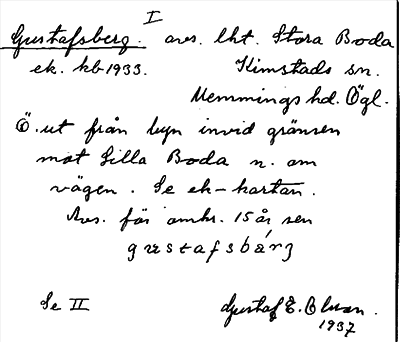 I
Gustafsberg. avs. lht. Stora Boda
ek. kb 1933. Kimstads sn.
Memmings hd. Ögl.
Ö. ut från byn invid gränsen
mot Lilla Boda n. om
vägen. Se ek-kartan.
Avs. för omkr. 15 år sen
gustafsbárj
Se II Gustaf E. Olsson.
1937